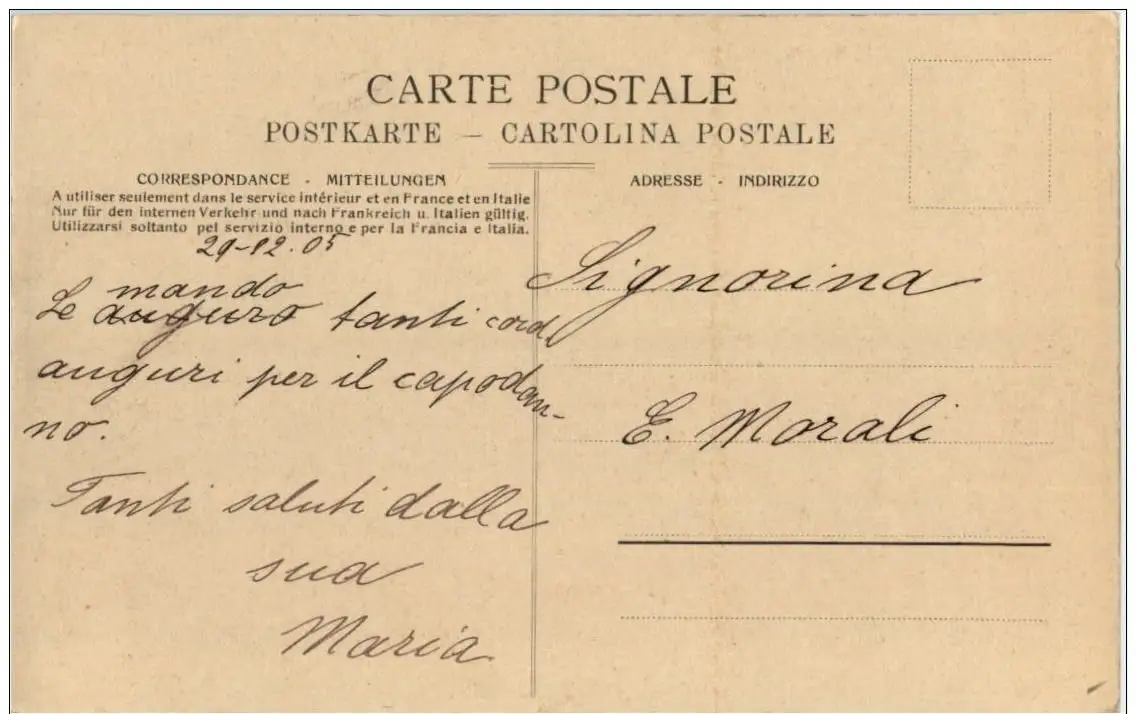 CARTE POSTALE
POSTKARTE – CARTOLINA POSTALE
CORRESPONDANCE - MITTEILUNGEN
A utiliser seulement dans le service intérieur et en France et en Italie
Nur für den internen Verkehr und nach Frankreich u. Italien gültig.
Utilizzarsi soltanto pel servizio interno e per la Francia e Italia.
29-12.05
mando
Le auguro tanti cord.
auguri per il capodan-
no.
Tanti saluti dalla
sua
Maria
ADRESSE - INDIRIZZO
Signorina
E. Morali